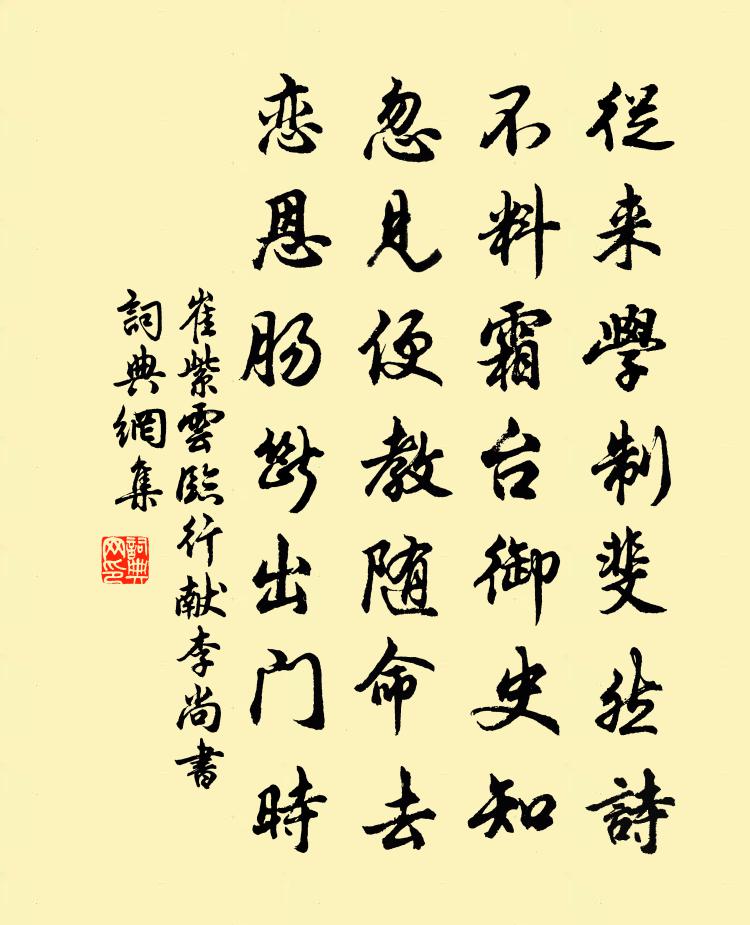 從来學制斐然詩
不料霜台御史知
忽見便教随命去
恋恩肠斷出门時
崔紫雲臨行献李尚書
詞典網集
詞典网印